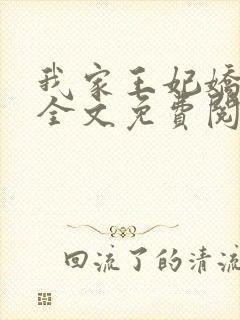 我家王妃嬌
全文免費閱
回流了的清流